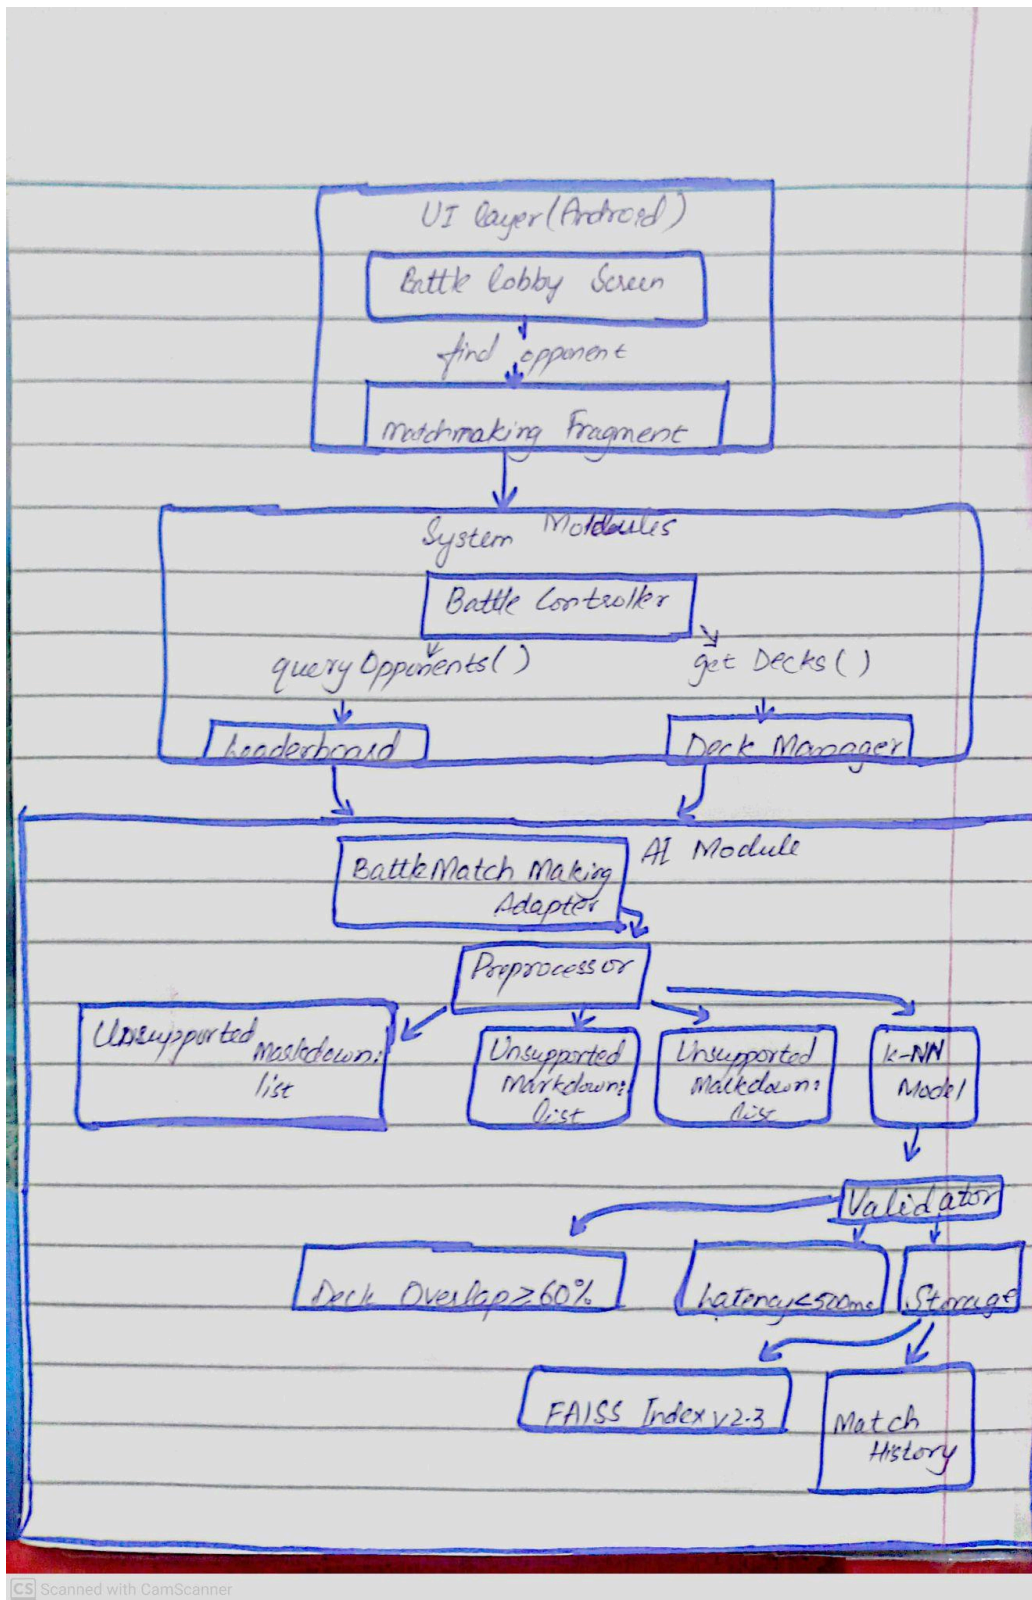 UI layer (Android)
Battle lobby Screen
find opponent
Matchmaking Fragment
System Modules
Battle Controller
queryOpponents()
get Decks()
Leaderboard
Deck Manager
AI Module
BattleMatch Making
Adapter
Preprocessor
Unsupported
Markdown:
list
Unsupported
Markdown:
list
Unsupported
Markdown:
list
k-NN
Model
Validator
Deck Overlap ≥ 60%
Latency<500ms
Storage
FAISS Index v2.3
Match
History
CS Scanned with CamScanner